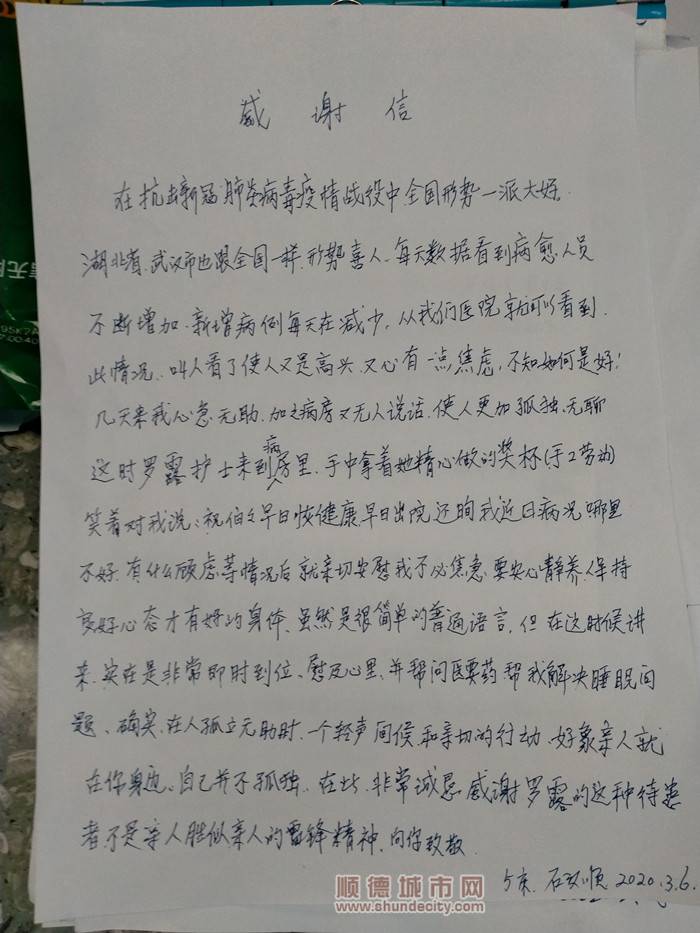 感谢信
在抗击新冠肺炎病毒疫情战役中全国形势一派大好.
湖北省.武汉市也跟全国一样.形势喜人、每天数据看到病愈人员
不断增加.新增病例每天在减少.从我们医院就可以看到.
此情况.叫人看了使人又是高兴.又心有一点焦虑,不知如何是好!
几天来我心急无助.加之病房又无人说话.使人更加孤独.无聊
这时罗露护士来到病房里.手中拿着她精心做的奖杯(手工劳动)
笑着对我说:祝伯伯早日恢健康.早日出院.还询我近日病况.哪里
不好.有什么顾虑等情况后就亲切安慰我不必焦急.要安心静养.保持
良好心态才有好的身体.虽然是很简单的普通语言.但在这时候讲
来.实在是非常即时到位、慰及心里、并帮问医要药帮我解决睡眠问
题、确实.在人孤立无助时.一个轻声问候和亲切的行动、好象亲人就
在你身边.自己并不孤独.在此.非常诚恳感谢罗露的这种待患
者.不是亲人胜似亲人的雷锋精神.向你致敬.
5床.石双顺 2020.3.6.
顺德城市网
www.shundecity.com
95K7A